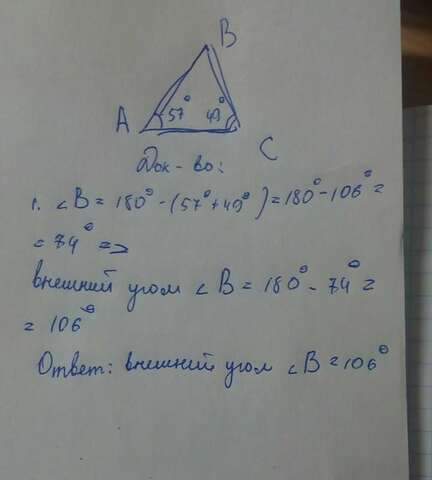 B
57° 49°
A
C
Док-во:
1. ∠B = 180° - (57° + 49°) = 180° - 106° =
= 74° =>
внешний угом ∠B = 180° - 74° =
= 106°
Ответ: внешний угом ∠B = 106°